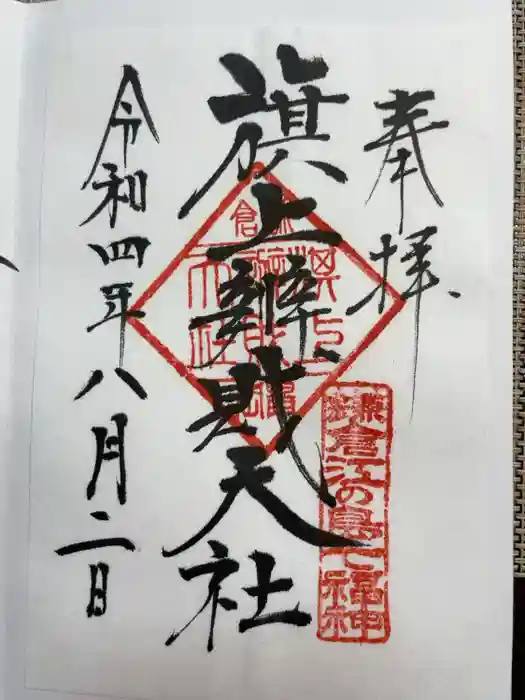 奉拝
鎌倉江の島七福神
旗上辨財天社
令和四年八月二日